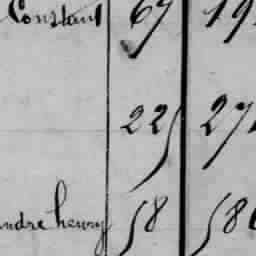 Constant 67 19
225 27
andre henry 58 586